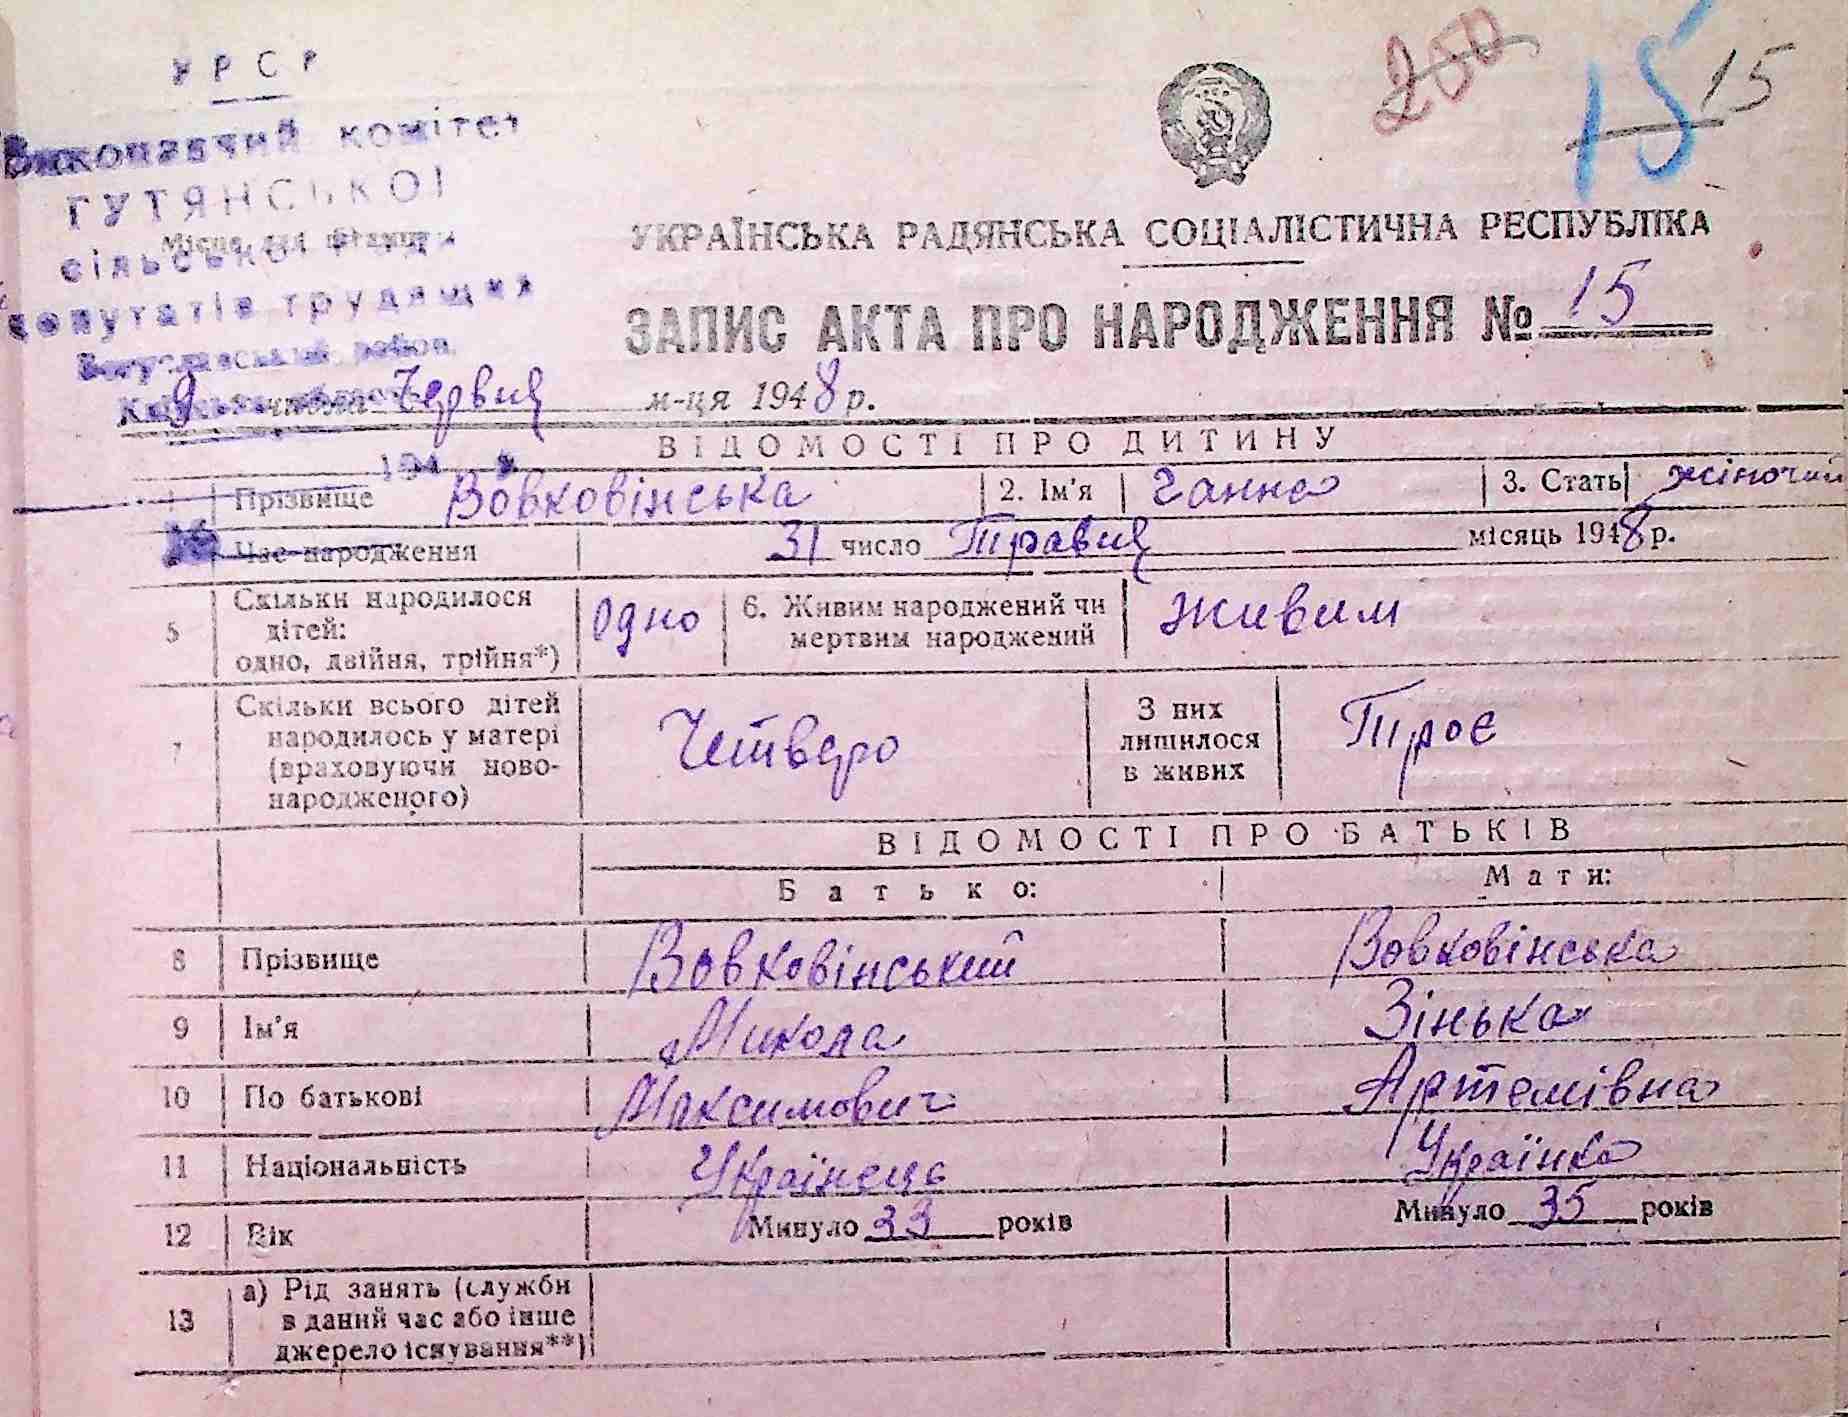 УРСР
Виконавчий комітет
ГУТЯНСЬКОЇ
Місце для штампу
сільської Ради
депутатів трудящих
Богуславський район
200
15
15
УКРАЇНСЬКА РАДЯНСЬКА СОЦІАЛІСТИЧНА РЕСПУБЛІКА
ЗАПИС АКТА ПРО НАРОДЖЕННЯ № 15
9 числа Червня м-ця 1948 р.
ВІДОМОСТІ ПРО ДИТИНУ
194 р.
1 Прізвище Вовковінська 2. Ім'я Ганна 3. Стать жіночий
Час народження 31 число Травня місяць 1948 р.
5 Скільки народилося дітей: одно, двійня, трійня*) Одно 6. Живим народжений чи мертвим народжений Живим
7 Скільки всього дітей народилось у матері (враховуючи новонародженого) Четверо З них лишилося в живих Троє
ВІДОМОСТІ ПРО БАТЬКІВ
Батько: Мати:
8 Прізвище Вовковінський Вовковінська
9 Ім'я Микола Зінька
10 По батькові Максимович Артемівна
11 Національність Українець Українка
12 Вік Минуло 33 років Минуло 35 років
13 а) Рід занять (служби в даний час або інше джерело існування**)